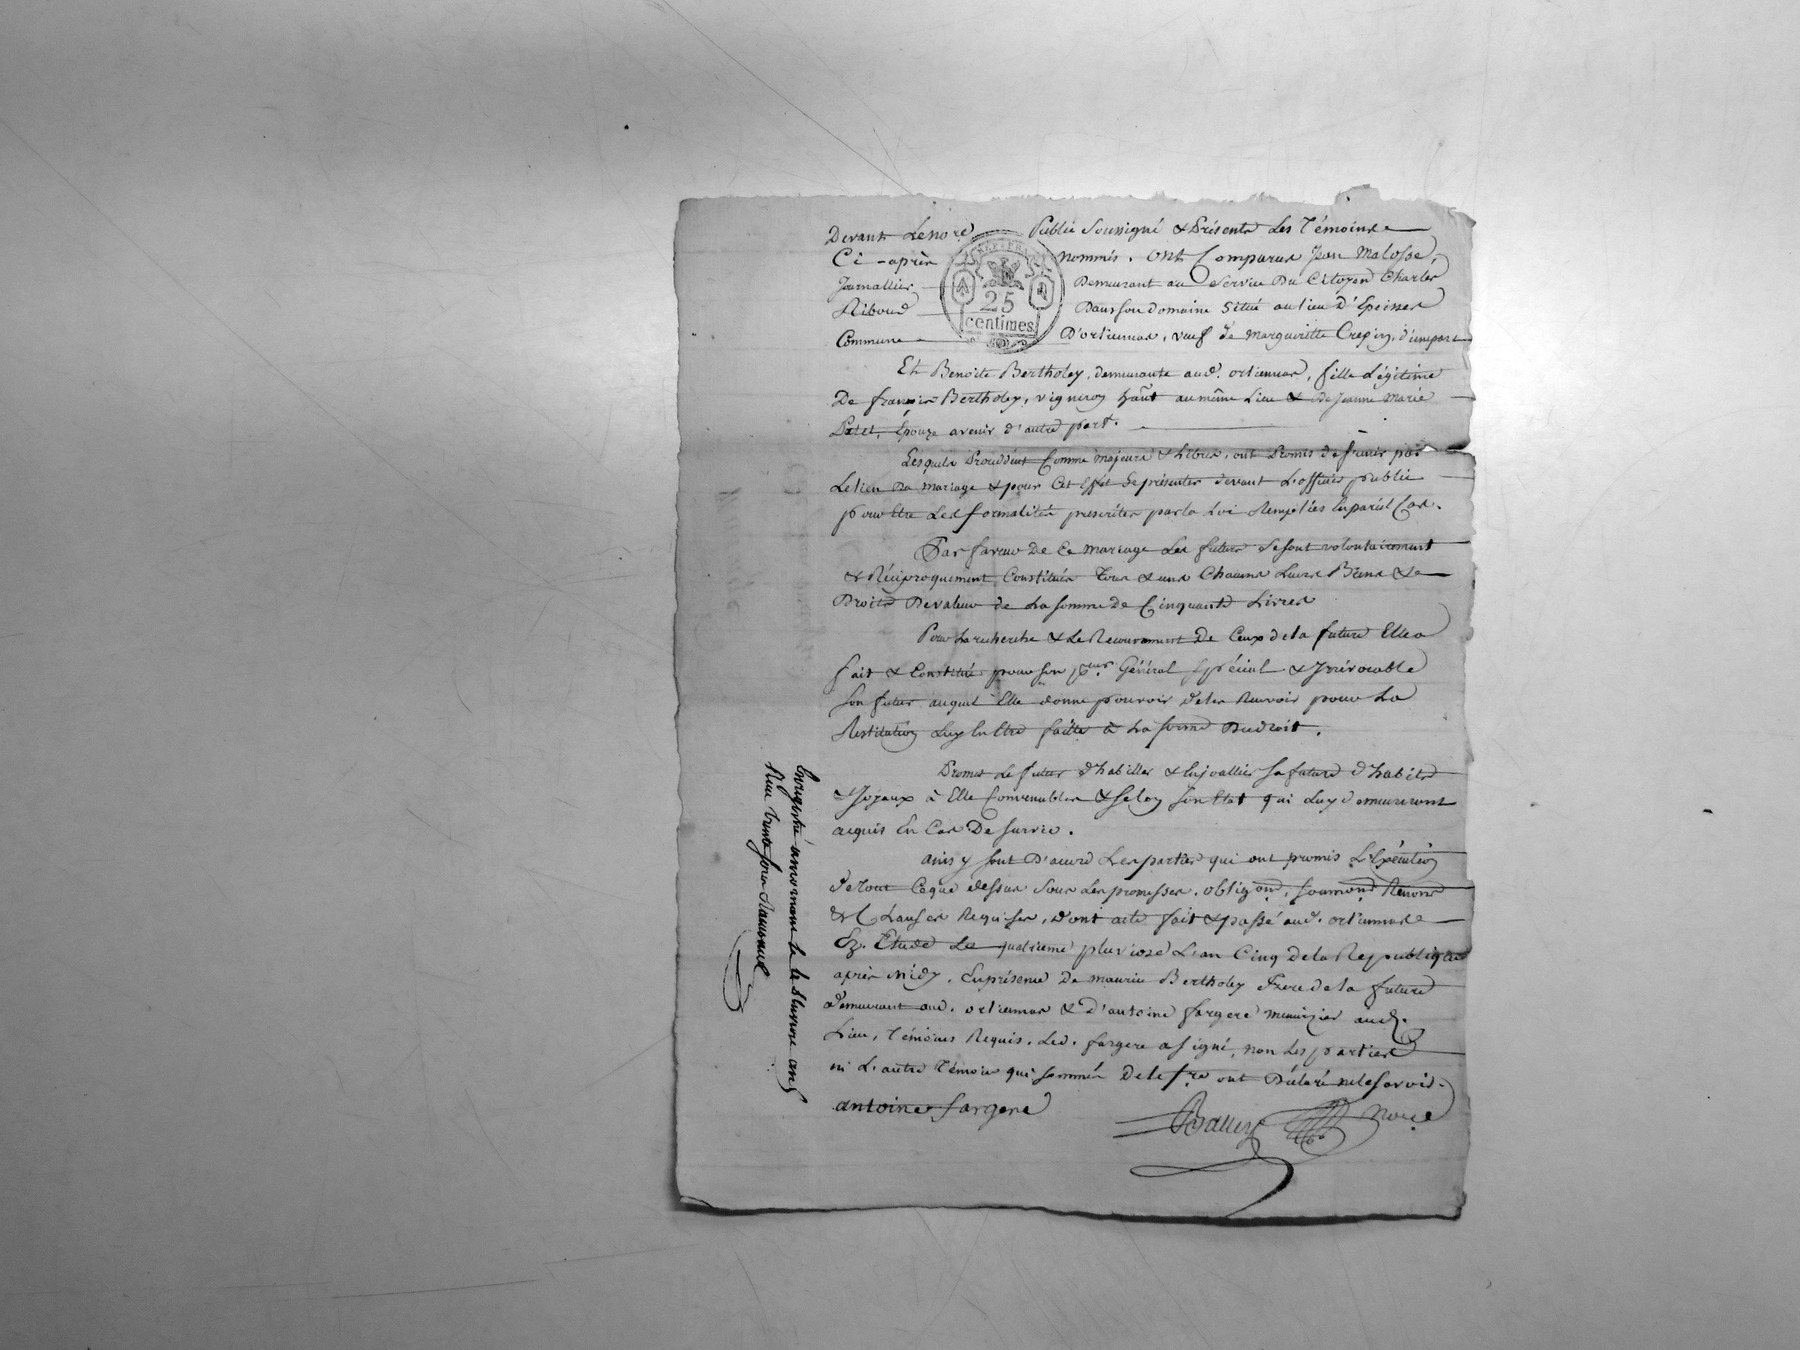 Devant Le no.re Public Soussigné & Présents Les Témoins
Ci-après nommés. Ont Comparus Jean Malosse,
Journallier Demeurant au Service Du Citoyen Charles
Riboud Dans son domaine Situé au lieu d'Epeisses
Commune D'orliennas, veuf de Margueritte Crepin, d'une part
REP. FRA.
25
centimes
Et Benoite Bertholey, demeurante aud. orliennas, fille Légitime
De françois Bertholey, vigneron h͠ant au même Lieu & De Jeanne Marie
Epouze avenir d'autre part.
Lesquels Procédant Comme majeurs & Libres, ont Promis de s'unir par
Le lien Du mariage & pour Cet Effet Se présenter devant L'officier public
pour Etre Les formalités prescrites par la Loi Remplies En pareil Cas.
Par faveur De Ce mariage Les futurs Se sont volontairement
& Réciproquement Constitués Tous & uns Chacuns Leurs Biens &
Droits De valeur de La somme de Cinquante Livres
Pour La recherche & Le Recouvrement De Ceux de la future Elle a
fait & Constitué pour son p.eur Général Spécial & Irrévocable
Son futur auquel Elle donne pouvoir de les Recevoir pour La
Restitution Luy En Etre faitte à La forme Du droit.
Promet Le futur d'habiller & Enjoallier Sa future d'habits
& Joyaux à Elle Convenables & Selon Son Etat qui Luy demeureront
acquis En Cas De Survie.
ainsy Sont D'accord Les parties qui ont promis L'Exécution
de tout Ce que dessus Sous Les promesses, obligon͠s, Renons
& Clauses Requises, dont acte fait & passé aud. orliennas
Ez. Etude Le quatrieme pluviose L'an Cinq de la Republique
après Midy. En présence De maurice Bertholey frere de la future
demeurant aud. orliennas & d'antoine fargere menuizier aud.
Lieu, Témoins Requis. Led. fargere a signé, non Les parties
ni L'autre Témoin qui Sommés De le f.re ont Déclaré ne le Savoir.
antoine fargere
no.re
Enregistré à mornant le pluviose an 5